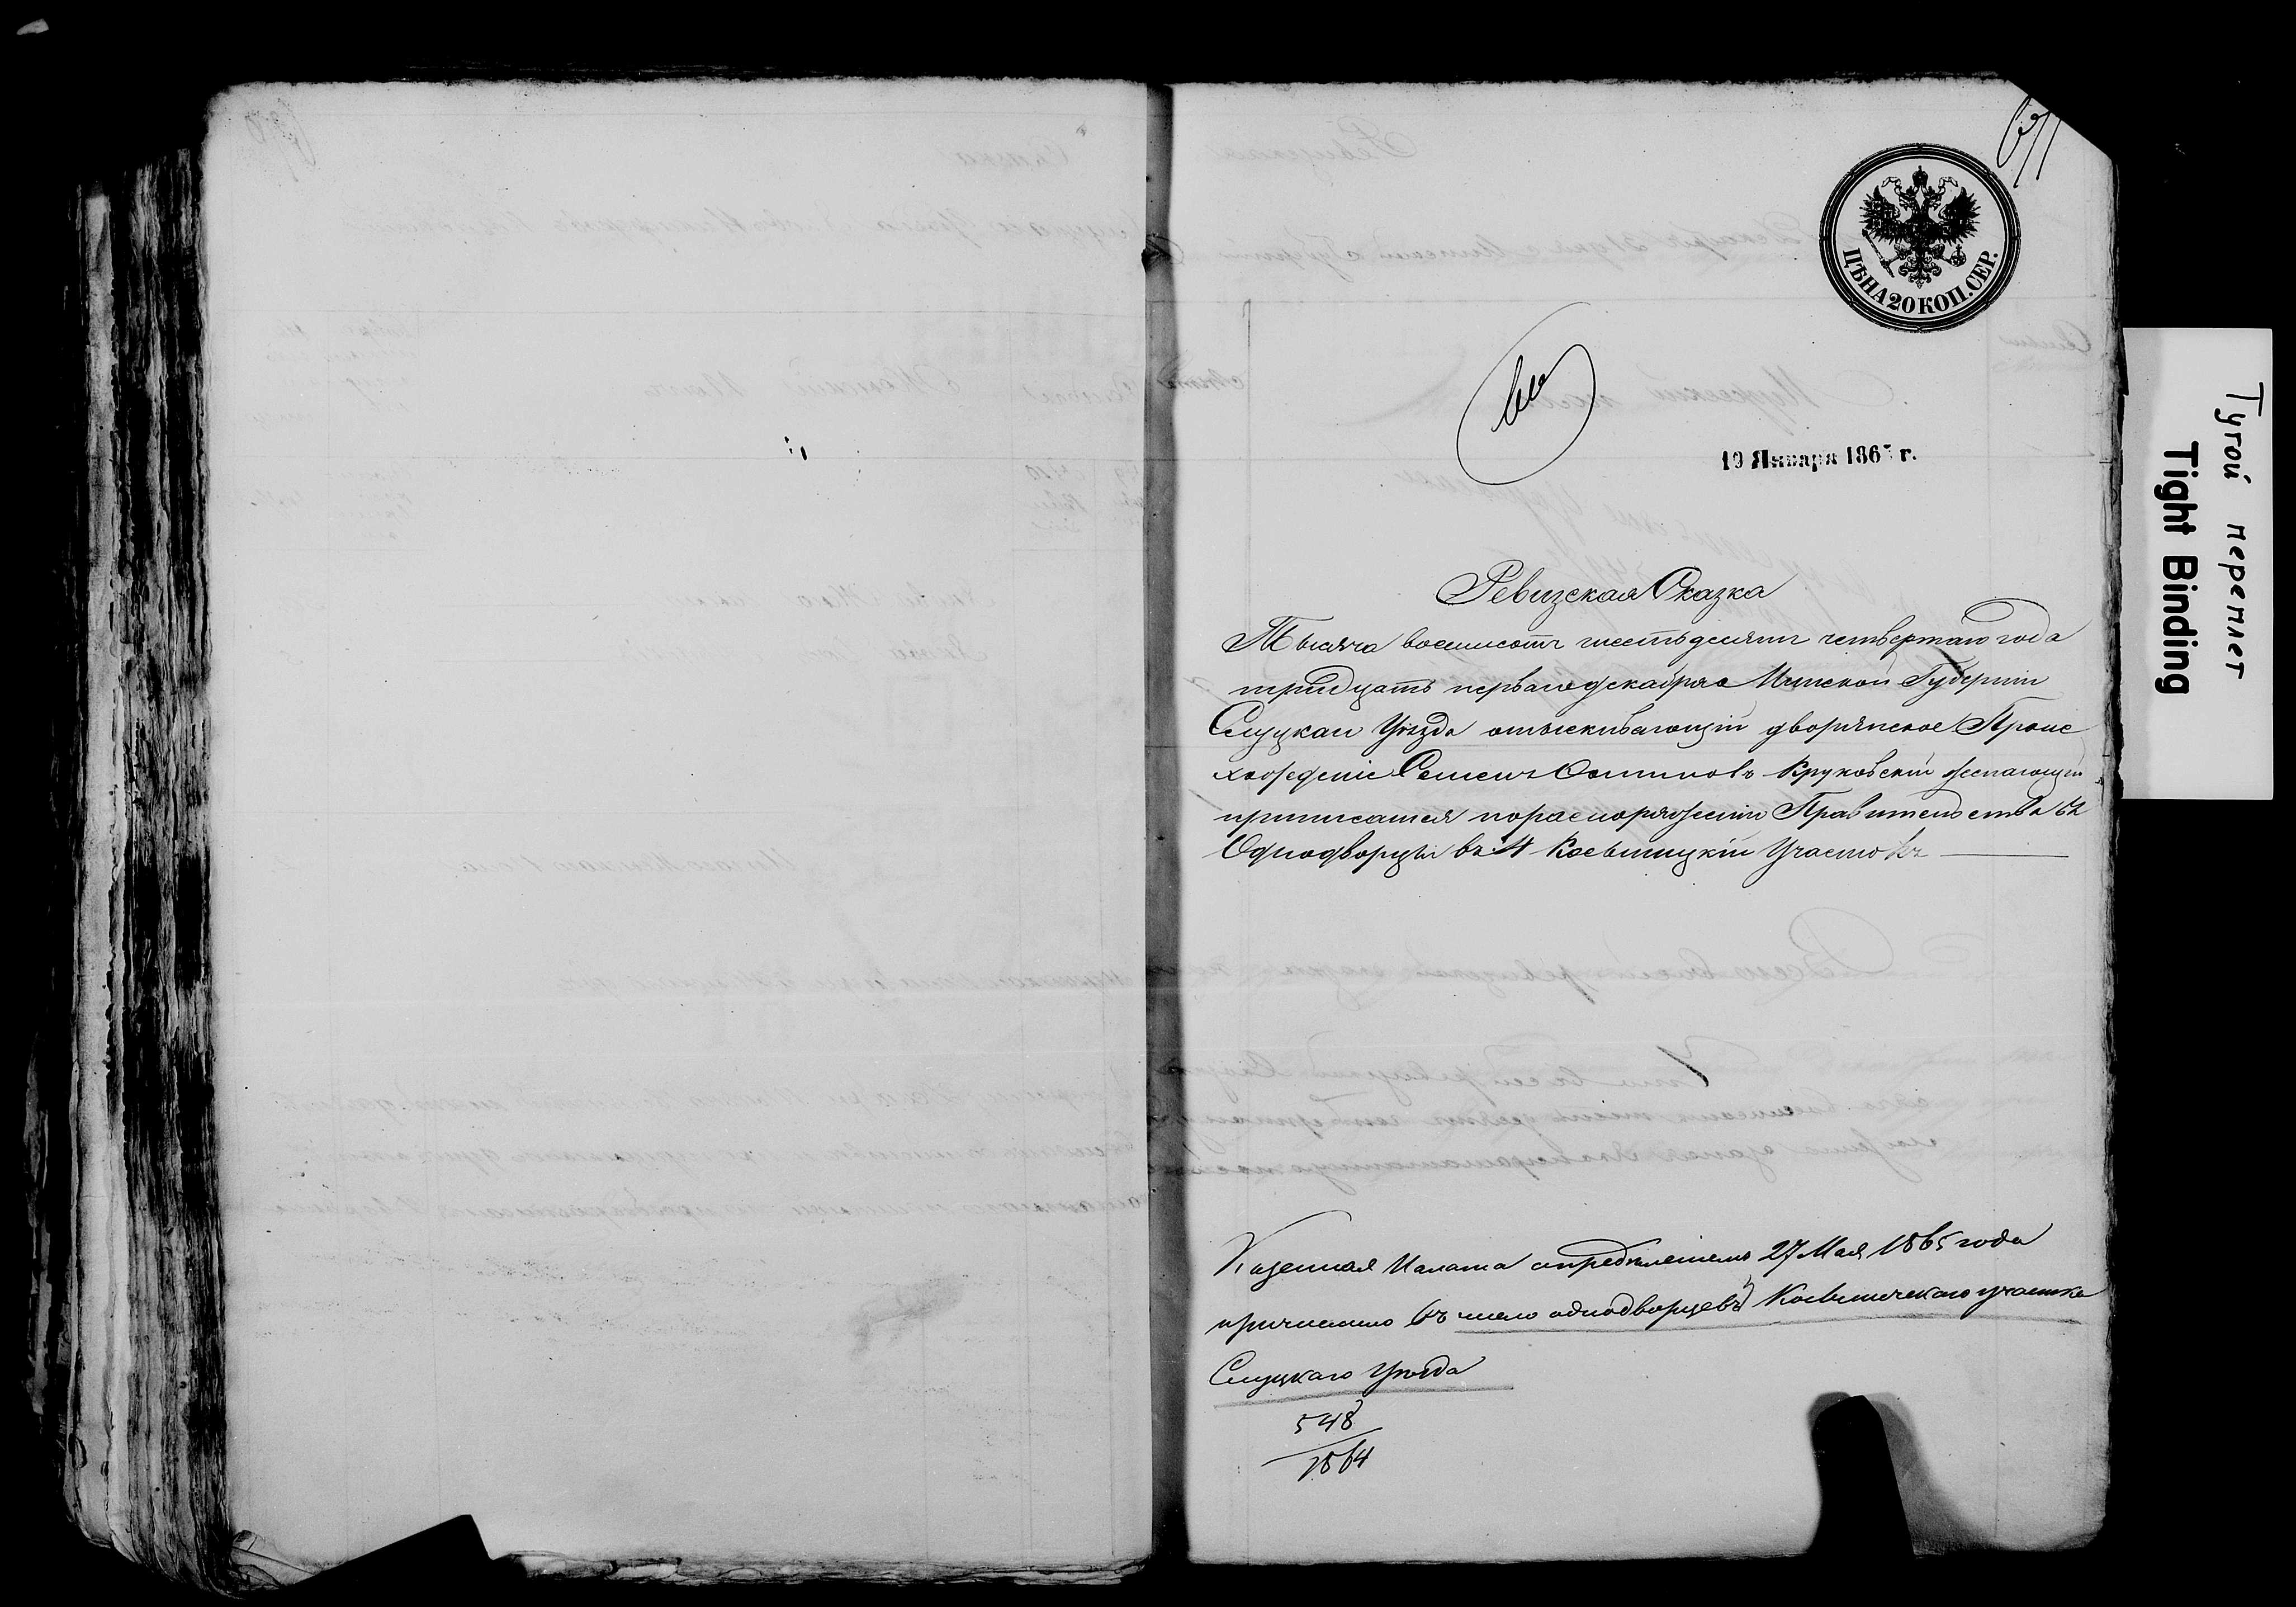 ЦѢНА 20 КОП. СЕР.
19 Января 1865 г.
Ревизская Сказка
Тысяча восемьсотъ шестьдесятъ четвертаго года
тридцать перваго декабря Минской Губерніи
Слуцкаго Уѣзда отыскивающій дворянское Проис
хожденіе Семенъ Осиповъ Круковскій желающій
приписатся по распоряженіи Правительства въ
Однодворцы въ 4 Участокъ
Казенная Палата опредѣленіемъ 27 Мая 1865 года
причислено въ число однодворцевъ участка
Слуцкаго Уѣзда
548
1864
Тугой переплет
Tight Binding